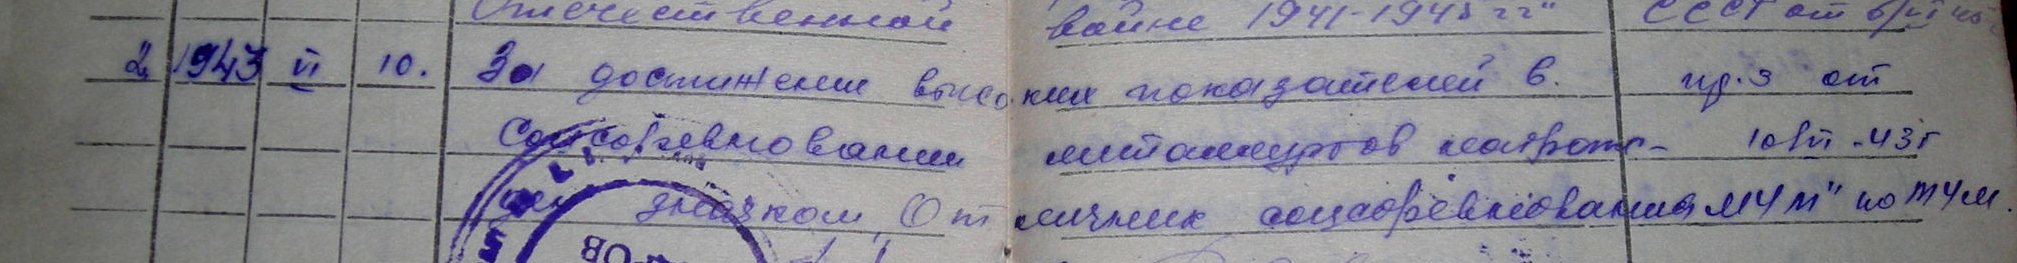 Отечественной войне 1941-1945 гг" СССР от
2 1943 VI 10. За достижение высоких показателей в. пр. 3 от
соцсоревновании металлургов награж- 10/VI-43г
ден значком „Отличник соцсоревнования МЧМ" по МЧМ.
ОВ